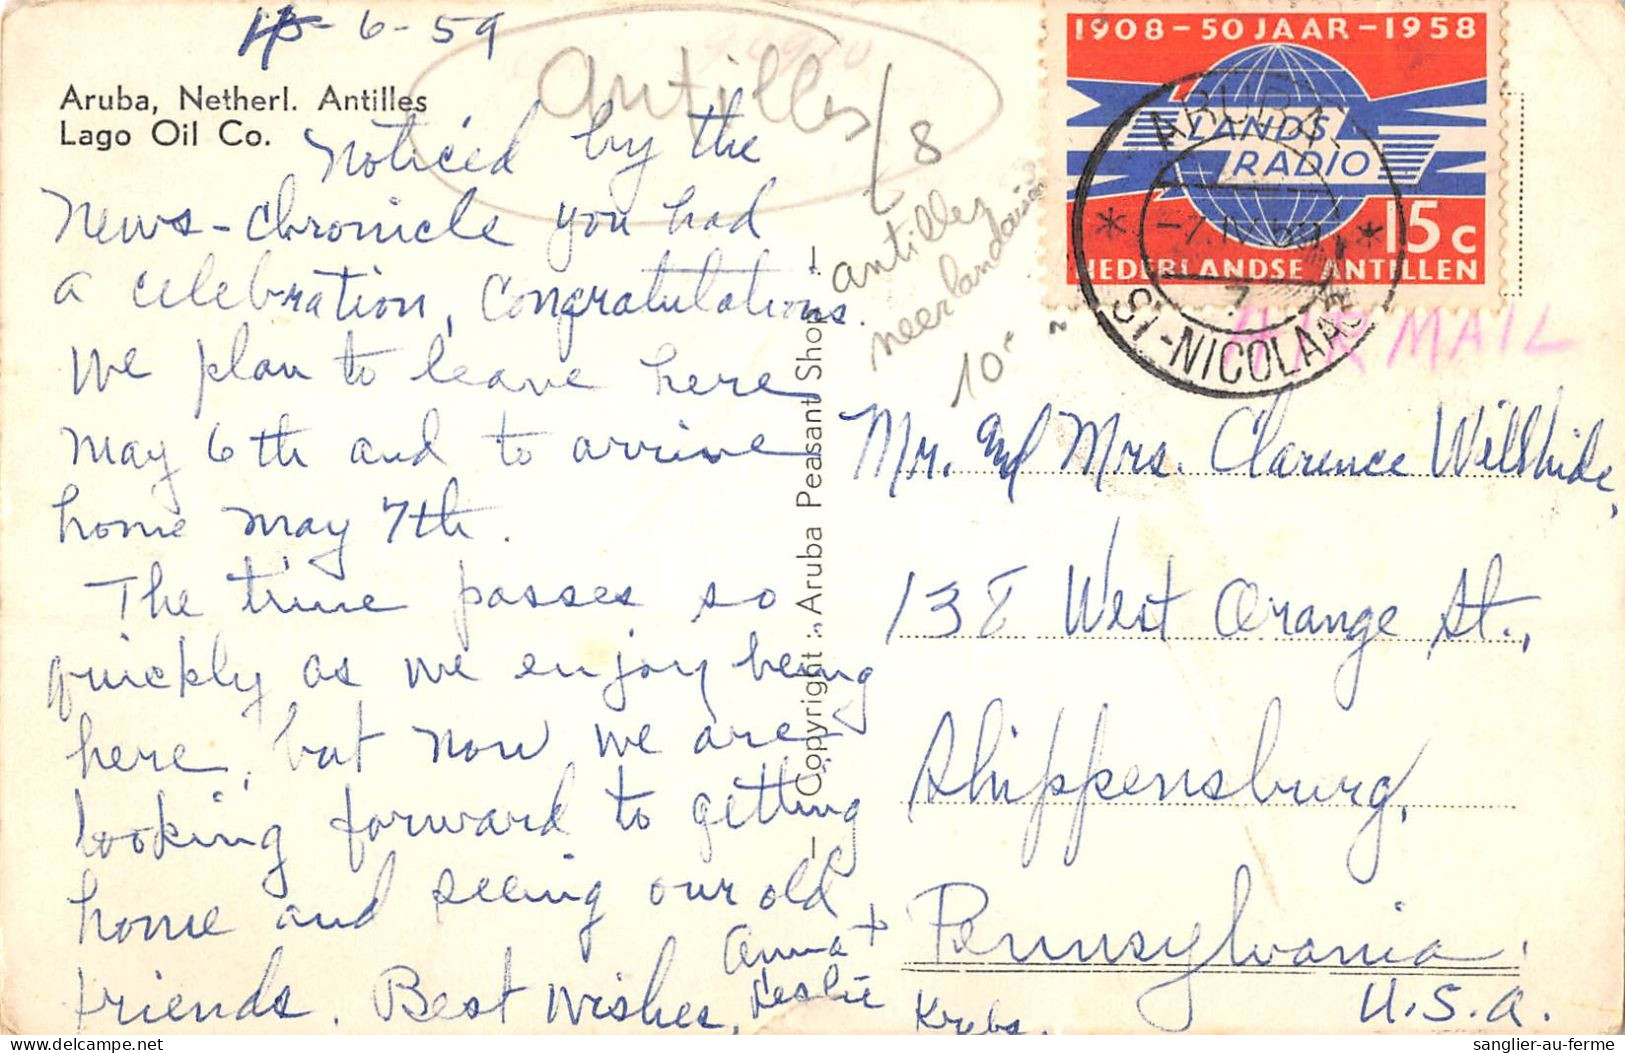 4-6-59
Aruba, Netherl. Antilles
Lago Oil Co.
Noticed by the
News-Chronicle you had
a celebration, Congratulations.
We plan to leave here
May 6th and to arrive
home May 7th.
The time passes so
quickly as we enjoy being
here, but now we are
looking forward to getting
home and seeing our old
friends. Best Wishes,
Anna +
Leslie
Krebs.
— Copyright: Aruba Peasant Shop —
Antilles
/8
antilles
neerlandaises
10
1908 - 50 JAAR - 1958
LANDS
RADIO
15 c
NEDERLANDSE ANTILLEN
ARUBA
-7.IV.59.
7
ST.-NICOLAAS
AIR MAIL
Mr. and Mrs. Clarence Willhide,
138 West Orange St.,
Shippensburg,
Pennsylvania,
U.S.A.
sanglier-au-ferme